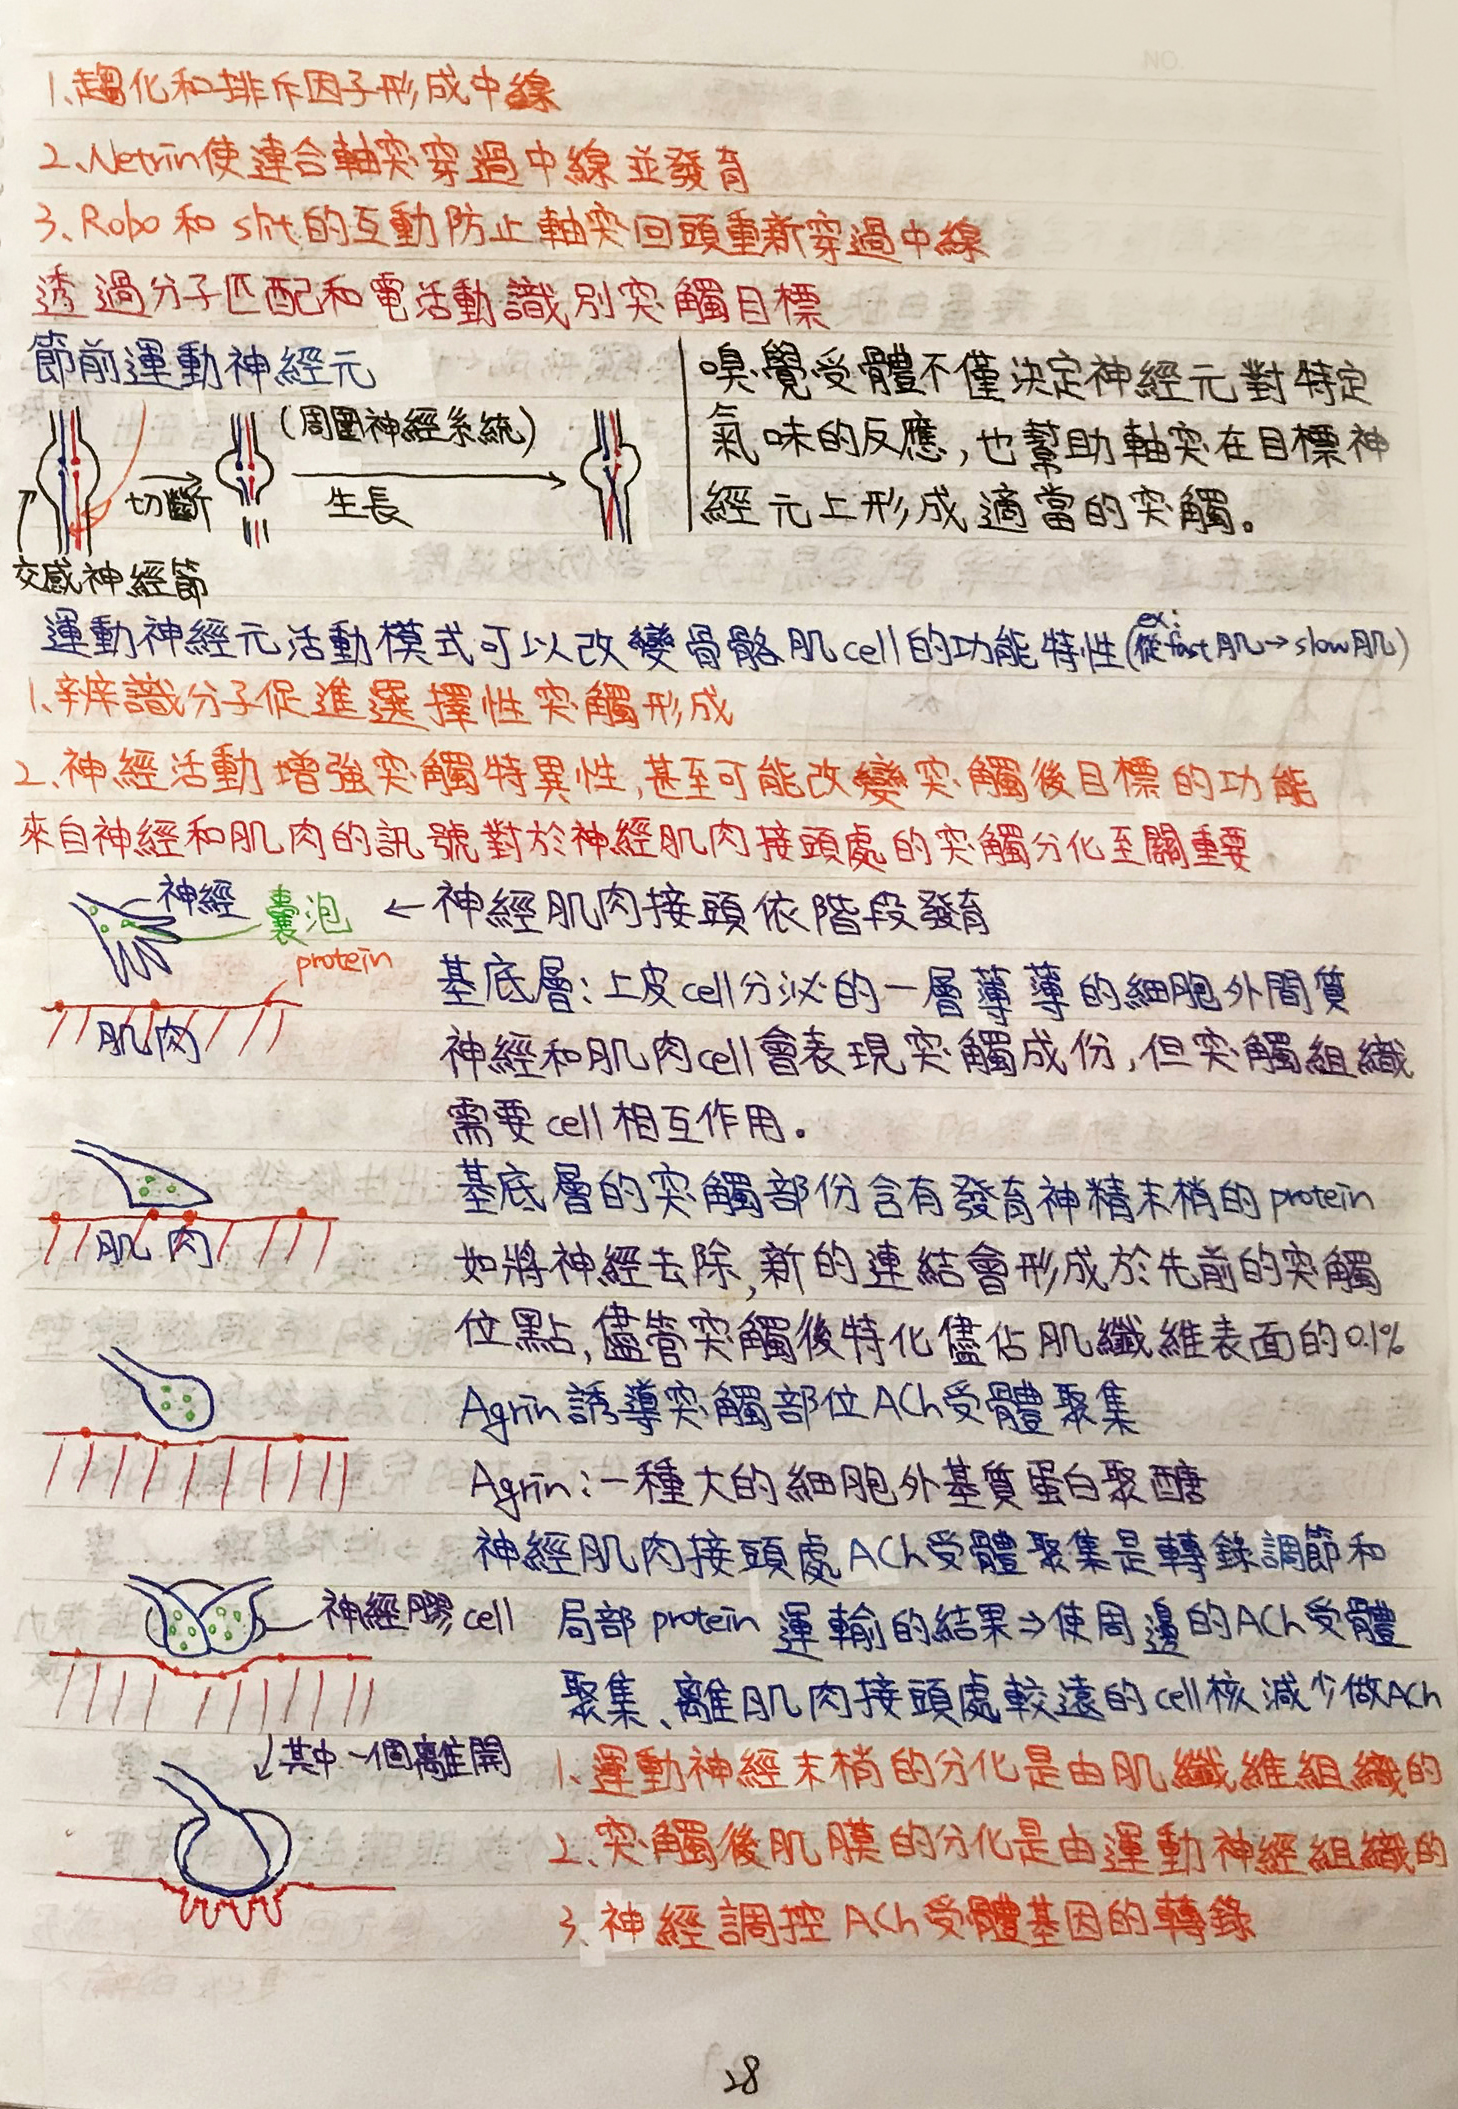 1、趨化和排斥因子形成中線
2、Netrin使連合軸突穿過中線並發育
3、Robo和slit的互動防止軸突回頭重新穿過中線
透過分子匹配和電活動識別突觸目標
節前運動神經元
(周圍神經系統)
切斷
生長
交感神經節
嗅覺受體不僅決定神經元對特定
氣味的反應,也幫助軸突在目標神
經元上形成適當的突觸。
運動神經元活動模式可以改變骨骼肌cell的功能特性(ex:從fast肌→slow肌)
1、辨識分子促進選擇性突觸形成
2、神經活動增強突觸特異性,甚至可能改變突觸後目標的功能
來自神經和肌肉的訊號對於神經肌肉接頭處的突觸分化至關重要
神經
囊泡
protein
肌肉
←神經肌肉接頭依階段發育
基底層:上皮cell分泌的一層薄薄的細胞外間質
神經和肌肉cell會表現突觸成份,但突觸組織
需要cell相互作用。
肌肉
基底層的突觸部份含有發育神精末梢的protein
如將神經去除,新的連結會形成於先前的突觸
位點,儘管突觸後特化僅佔肌纖維表面的0.1%
Agrin誘導突觸部位ACh受體聚集
Agrin:一種大的細胞外基質蛋白聚醣
神經肌肉接頭處ACh受體聚集是轉錄調節和
局部protein運輸的結果⇒使周邊的ACh受體
聚集、離肌肉接頭處較遠的cell核減少做ACh
神經膠cell
↙其中一個離開
1、運動神經末梢的分化是由肌纖維組織的
2、突觸後肌膜的分化是由運動神經組織的
3、神經調控ACh受體基因的轉錄
28
NO.